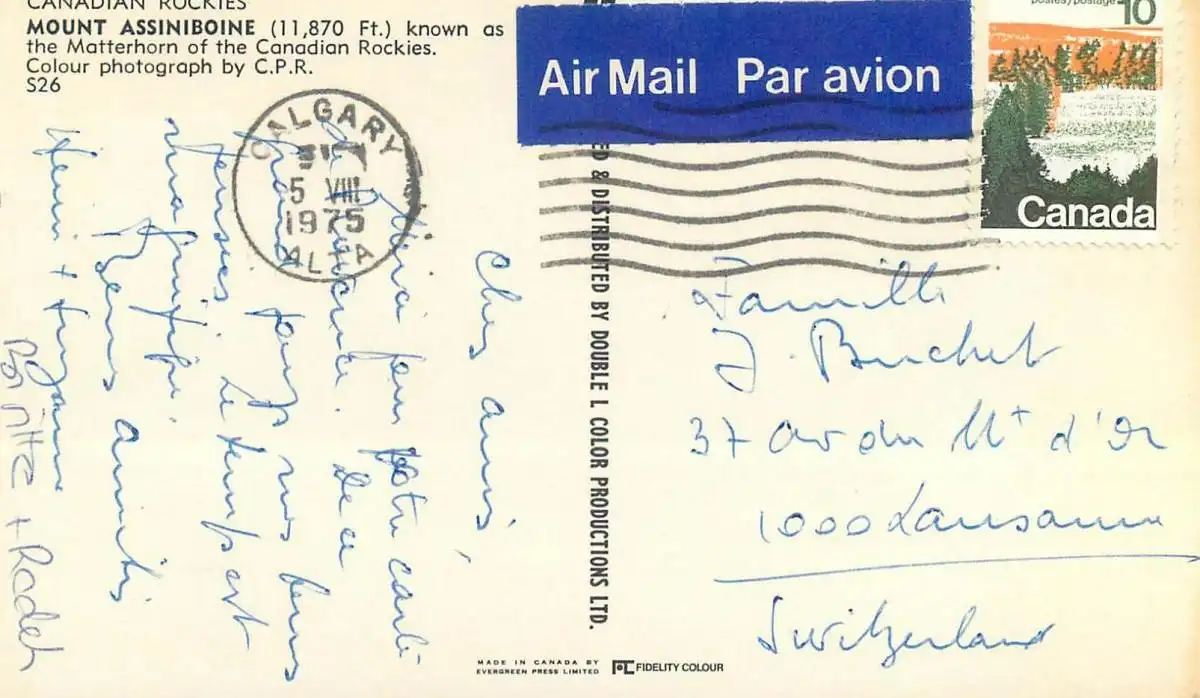 CANADIAN ROCKIES
MOUNT ASSINIBOINE (11,870 Ft.) known as
the Matterhorn of the Canadian Rockies.
Colour photograph by C.P.R.
S26
Air Mail Par avion
postes/postage 10
Canada
CALGARY
5 VIII
1975
ALTA
Chers amis,
Merci pour votre carte
de
grand nos bonnes
pensées. Le temps est
magnifique.
Bons amitiés
Henri + Suzanne
+ Radek
ED & DISTRIBUTED BY DOUBLE L COLOR PRODUCTIONS LTD.
Famille
J. Buchet
37 av du Mt d'Or
1000 Lausanne
Switzerland
MADE IN CANADA BY
EVERGREEN PRESS LIMITED
FIDELITY COLOUR